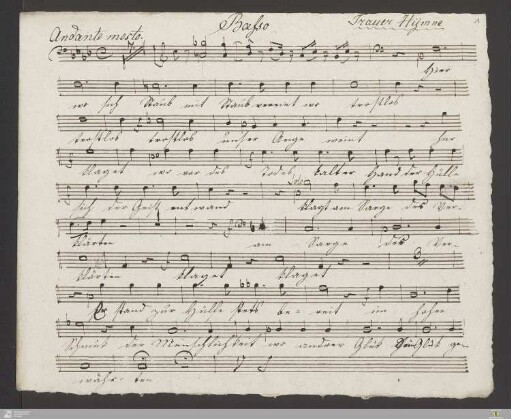 Basso
Trauer Hymne
1
Andante mesto.
Hier
wo sich Staub mit Staub vereint wo trostlos
trostlos trostlos unser Auge weint hier
klaget wo vor des Todes kalter Hand der Hülle
Solo
sich der Geist entwand klagt am Sarge des Ver-
klärten am Sarge des Ver-
klärten klaget klaget
Er stand zur Hülfe stets be- reit im hohen
Schmuk der Menschlichkeit wo andrer Glük Glük ge-
währ- ten